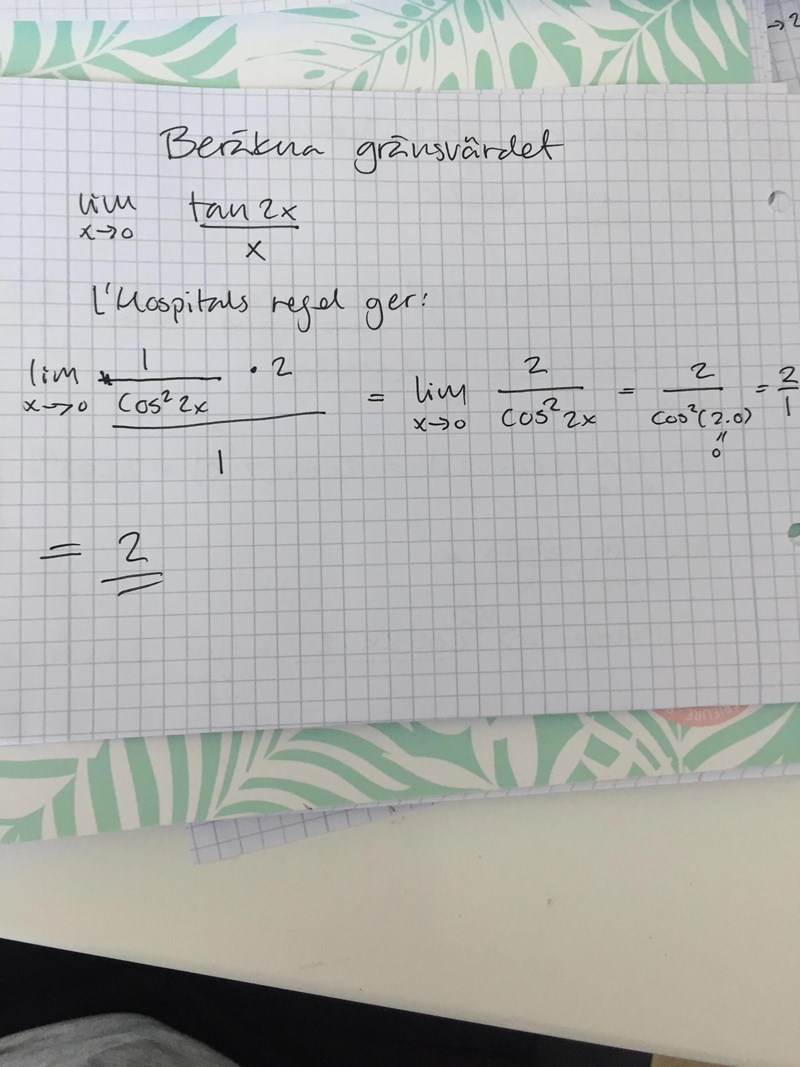 → 2
Beräkna gränsvärdet
lim x→0 tan 2x / x
L'Hospitals regel ger:
lim x→0 1 / cos² 2x · 2 / 1 = lim x→0 2 / cos² 2x = 2 / cos²(2·0) = 2 / 1
"
0
= 2